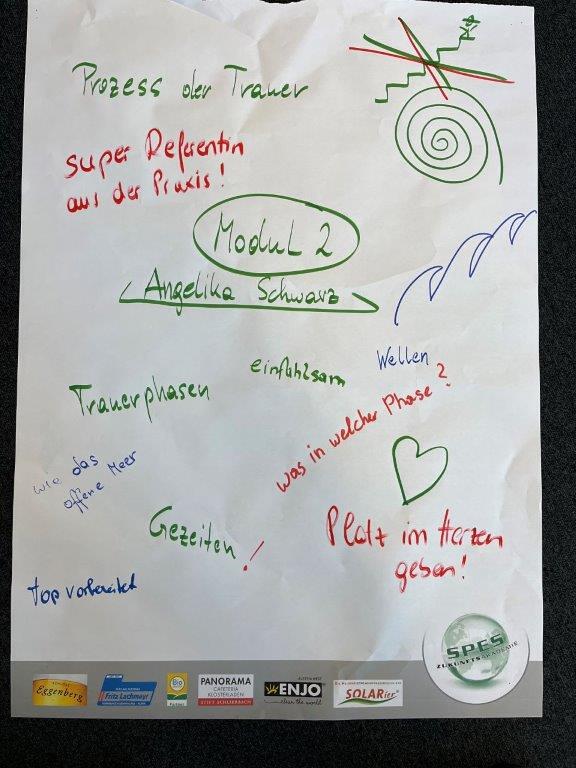 Prozess der Trauer
super Referentin
aus der Praxis!
Modul 2
Angelika Schwarz
Wellen
einfühlsam
Trauerphasen
was in welcher Phase?
wie das
offene Meer
Gezeiten!
Platz im Herzen
geben!
top vorbereitet
SPES
ZUKUNFTSAKADEMIE
Eggenberg
Fritz Lachmayr
Bio
Partner
PANORAMA
CAFETERIA
KLOSTERLADEN
STIFT SCHLIERBACH
ENJO
clean the world
SOLARier